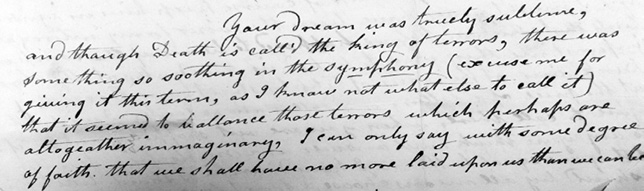 Your dream was truely sublime,
and though Death is call'd the king of terrors, there was
something so soothing in the symphony (excuse me for
giving it this term, as I know not what else to call it)
that it seemed to ballance those terrors which perhaps are
altogeather immaginary, I can only say with some degree
of faith. that we shall have no more laid upon us than we can be